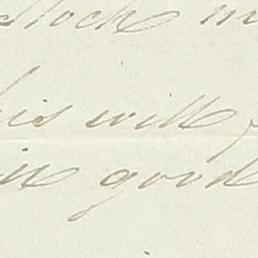 stock m
his will f
in good